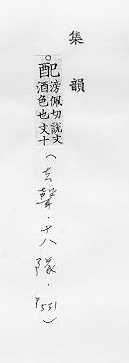 集韻
○配
滂佩切說文
酒色也文十
(去聲．十八隊．P531)